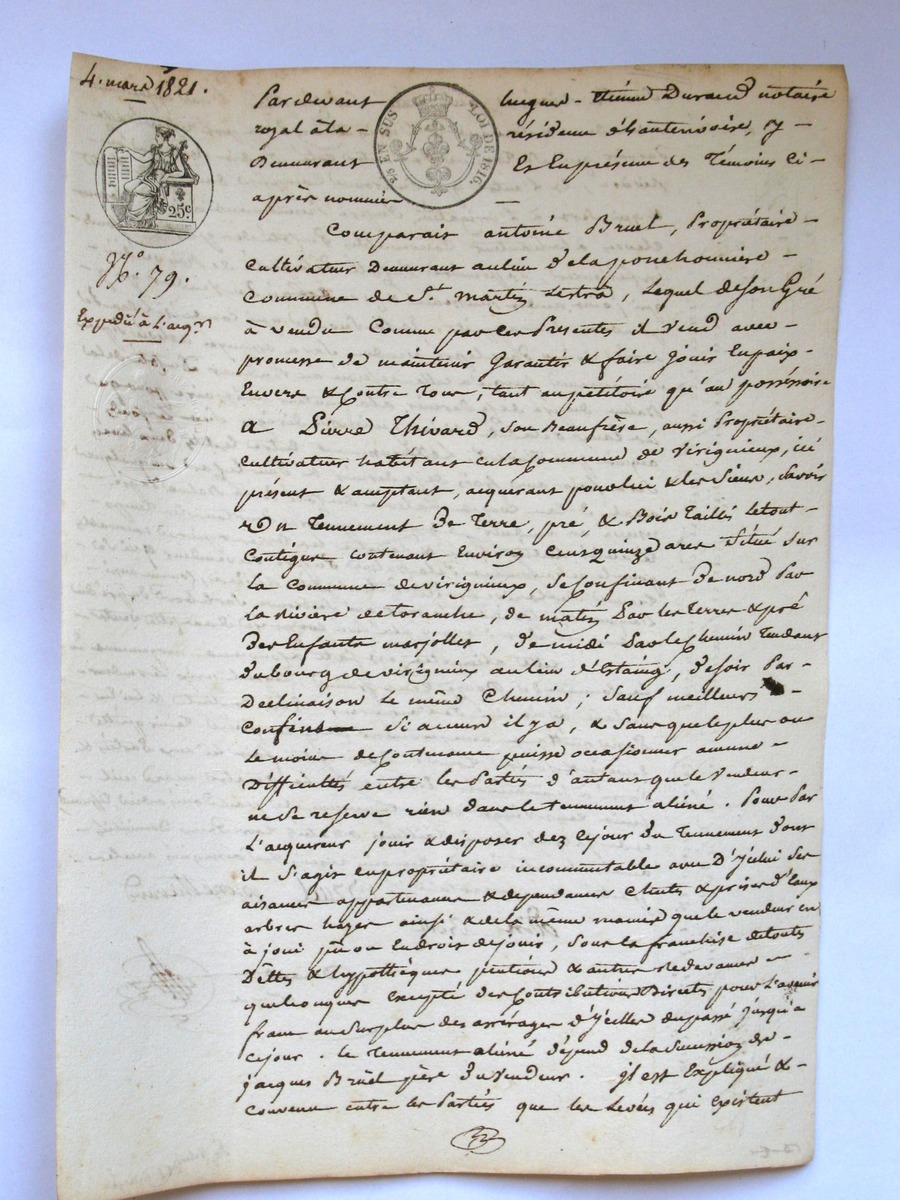 4. mars 1821.
25 EN SUS LOI DE 1816.
25c
N.o 79.
Expedié à L'acq.r
Pardevant hugues - étienne Durand notaire
royal à la - résidence d'hauterivoire, y -
Demeurant Et En présence des Témoins ci -
après nommés -
Comparait antoine Bruel, Propriétaire -
Cultivateur Demeurant au lieu de la ponchonnière -
Commune de St. martin Lestra, Lequel de son Gré
à vendu Comme par ces Présentes il vend avec -
promesse de maintenir Garantir & faire jouir En paix -
Envers & Contre Tous, tant au pétitoire qu'au posséssoire
A Pierre Thivard, son Beaufrère, aussi Propriétaire -
Cultivateur habitant en la Commune de Virigneux, ici
présent & acceptant, acquérant pour lui & les Siens, Savoir
Un Tennement De Terre, pré, & Bois Taillis le tout -
Contigue contenant Environ Cent quinze ares Situé sur
La Commune de virigneux, se Confinant De nord Par
La Rivière de toranche, de matin Par les Terres & pré
Des Enfants marjollet, de midi Par le Chemin Tendant
du bourg de virigneux au lieu d'Estaing, de soir Par -
Declinaison Le même Chemin; Sauf meilleurs -
Confins Si aucuns il y a, & Sans que le plus ou
Le moins de Contenance puisse occasionner aucune -
Difficultés entre les Parties d'autant que le Vendeur -
ne Se reserve rien dans le tennement aliéné. Pour Par
L'acquereur jouir & disposer dez ce jour du Tennement dont
il s'agit en propriétaire incommutable avec D'ycelui Ses
aisances appartenances & dependances Chutes & prises d'Eaux
arbres hayes ainsi & de la même manière que le vendeur en
à joui pû ou Eu droit de jouir, Sous la franchise de toutes
Dêttes & hypothèques pentions & autres Redevances -
quelconques Excepté des Contributions Directs pour L'avenir
franc au Surplus des arrérages d'Ycelles du passé jusqu'a
ce jour. Le Tennement aliéné dépend de la Succession de -
jacques Bruël père du Vendeur. Il est Expliqué & -
Convenu entre les Parties que les Levées qui existent